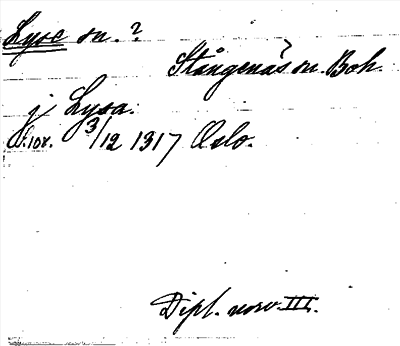 Lyse sn. ?
Stångenäs sn. Boh.
j Lysa.
Or. 3/12 1317 Oslo.
Dipl. norv. III.